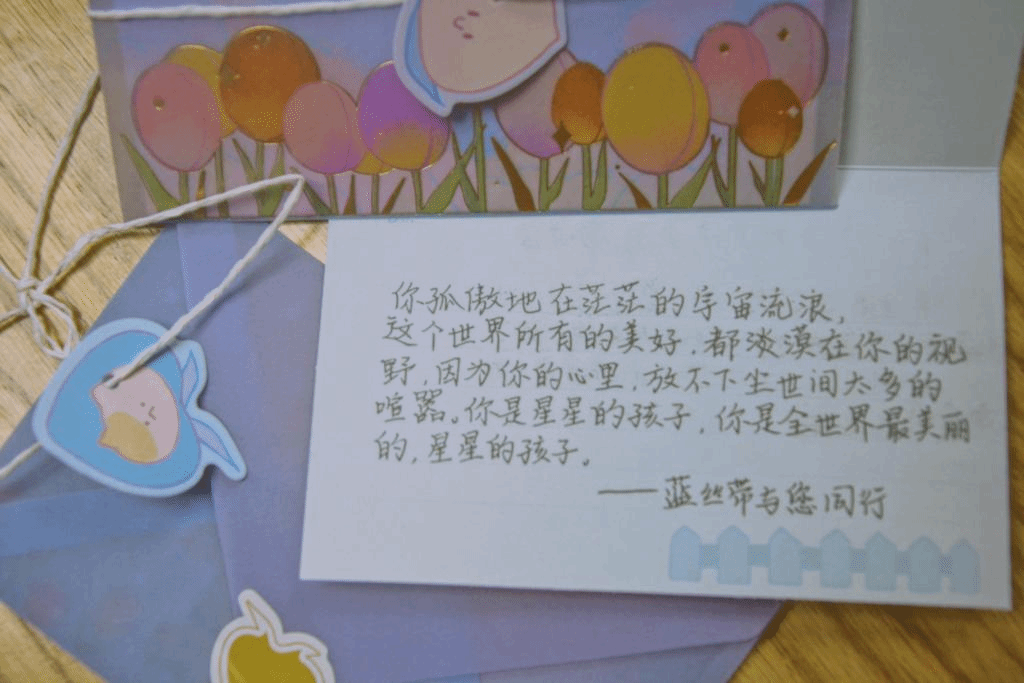 你孤傲地在茫茫的宇宙流浪，
这个世界所有的美好，都淡漠在你的视
野，因为你的心里，放不下尘世间太多的
喧嚣。你是星星的孩子，你是全世界最美丽
的，星星的孩子。
——蓝丝带与您同行